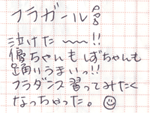 フラガール
泣けた〜〜!!
優ちゃんもしずちゃんも
踊りうまいっ!!
フラダンス習ってみたく
なっちゃった。